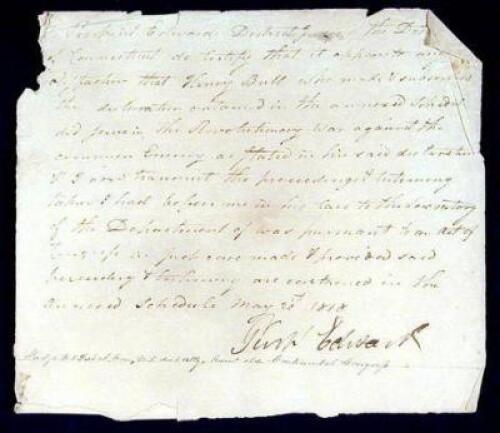 I Pierpont Edwards District Judge of the Dis
of Connecticut do certify that it appears to my
satisfaction that Henry Bull who made & subscribed
the declaration contained in the annexed schedule
did serve in the Revolutionary War against the
common Enemy as stated in his said declaration
& I now transmit the proceedings & testimony
taken & had before me in his case to the secretary
of the Department of war pursuant to an Act of
Congress in such case made & provided said
proceedings & testimony are contained in the
annexed schedule May 1818
Pierpt Edwards
old Continental Congress